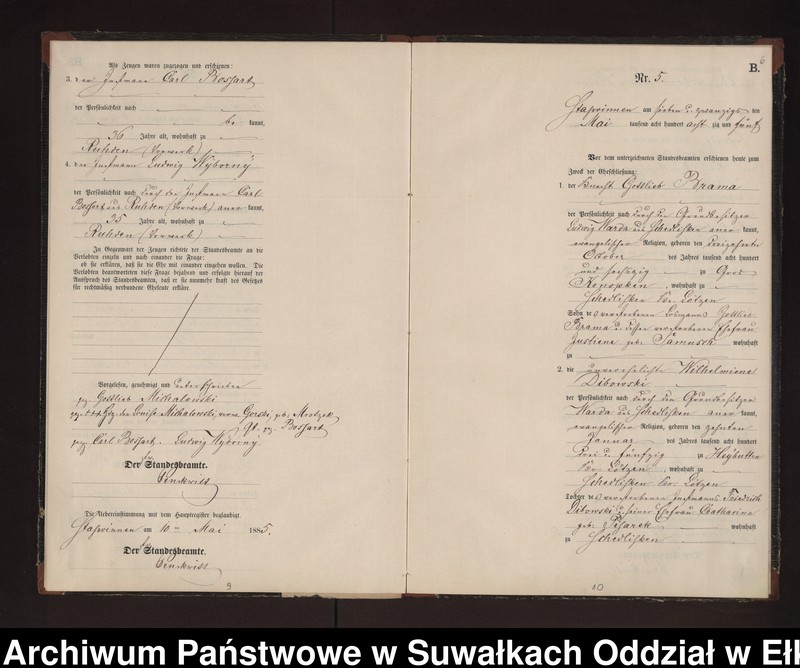 Als Zeugen waren zugezogen und erschienen:
3. der Instmann Carl Bossart
der Persönlichkeit nach
be kannt,
36 Jahre alt, wohnhaft zu
Ruhden (Vorwerk)
4. der Instmann Ludwig Wyborny
der Persönlichkeit nach durch den Instmann Carl
Bossart aus Ruhden (Vorwerk) aner kannt,
35 Jahre alt, wohnhaft zu
Ruhden (Vorwerk)
In Gegenwart der Zeugen richtete der Standesbeamte an die
Verlobten einzeln und nach einander die Frage:
ob sie erklären, daß sie die Ehe mit einander eingehen wollen. Die
Verlobten beantworteten diese Frage bejahend und erfolgte hierauf der
Ausspruch des Standesbeamten, daß er sie nunmehr kraft des Gesetzes
für rechtmäßig verbundene Eheleute erkläre.
Vorgelesen, genehmigt und unterschrieben
gez. Gottlieb Michalowski
gez. +++ Hdz. der Louise Michalowski, verw. Gorski, geb. Mrotzek
gez. Bossart
gez. Carl Bossart. Ludwig Wyborny
Der Standesbeamte.
Die Uebereinstimmung mit dem Hauptregister beglaubigt.
Staswinnen am 10ten Mai 1885.
Der Standesbeamte.
9
6
B.
Nr. 5.
Staswinnen am sieben u. zwanzigs ten
Mai tausend acht hundert acht zig und fünf
Vor dem unterzeichneten Standesbeamten erschienen heute zum
Zweck der Eheschließung:
1. der Knecht Gottlieb Brama
der Persönlichkeit nach durch den Grundbesitzer
Ludwig Warda aus Schedlisken aner kannt,
evangelischer Religion, geboren den dreizehnten
October des Jahres tausend acht hundert
und sechszig zu Gros
Konopken, wohnhaft zu
Schedlisken Kr. Lötzen
Sohn des verstorbenen Losmanns Gottlieb
Brama u. dessen verstorbenen Ehefrau
Justine geb. wohnhaft
zu
2. die unverehelichte Wilhelmine
Dibowski
der Persönlichkeit nach durch den Grundbesitzer
Warda aus Schedlisken aner kannt,
evangelischer Religion, geboren den zehnten
Januar des Jahres tausend acht hundert
drei u. fünfzig zu Heybutten
Kr. Lötzen, wohnhaft zu
Schedlisken Kr. Lötzen
Tochter des verstorbenen Instmanns Friedrich
Dibowski u. seiner Ehefrau Catharine
geb. wohnhaft
zu Schedlisken
10
Archiwum Państwowe w Suwałkach Oddział w Ełk